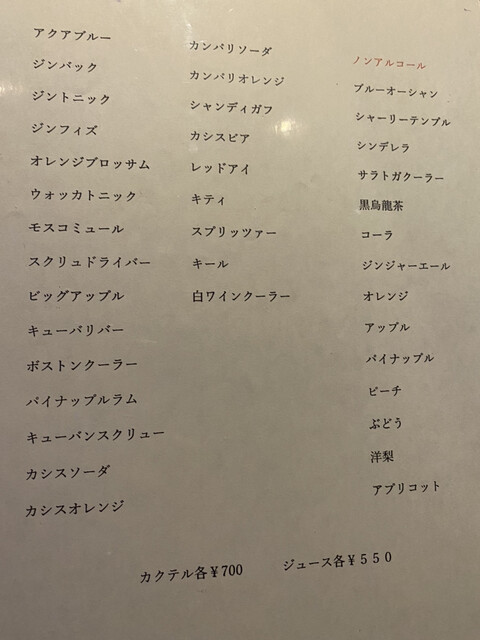 アクアブルー
ジンバック
ジントニック
ジンフィズ
オレンジブロッサム
ウォッカトニック
モスコミュール
スクリュドライバー
ビッグアップル
キューバリバー
ボストンクーラー
パイナップルラム
キューバンスクリュー
カシスソーダ
カシスオレンジ
カンパリソーダ
カンパリオレンジ
シャンディガフ
カシスビア
レッドアイ
キティ
スプリッツァー
キール
白ワインクーラー
ノンアルコール
ブルーオーシャン
シャーリーテンプル
シンデレラ
サラトガクーラー
黒烏龍茶
コーラ
ジンジャーエール
オレンジ
アップル
パイナップル
ピーチ
ぶどう
洋梨
アプリコット
カクテル各¥700
ジュース各¥550